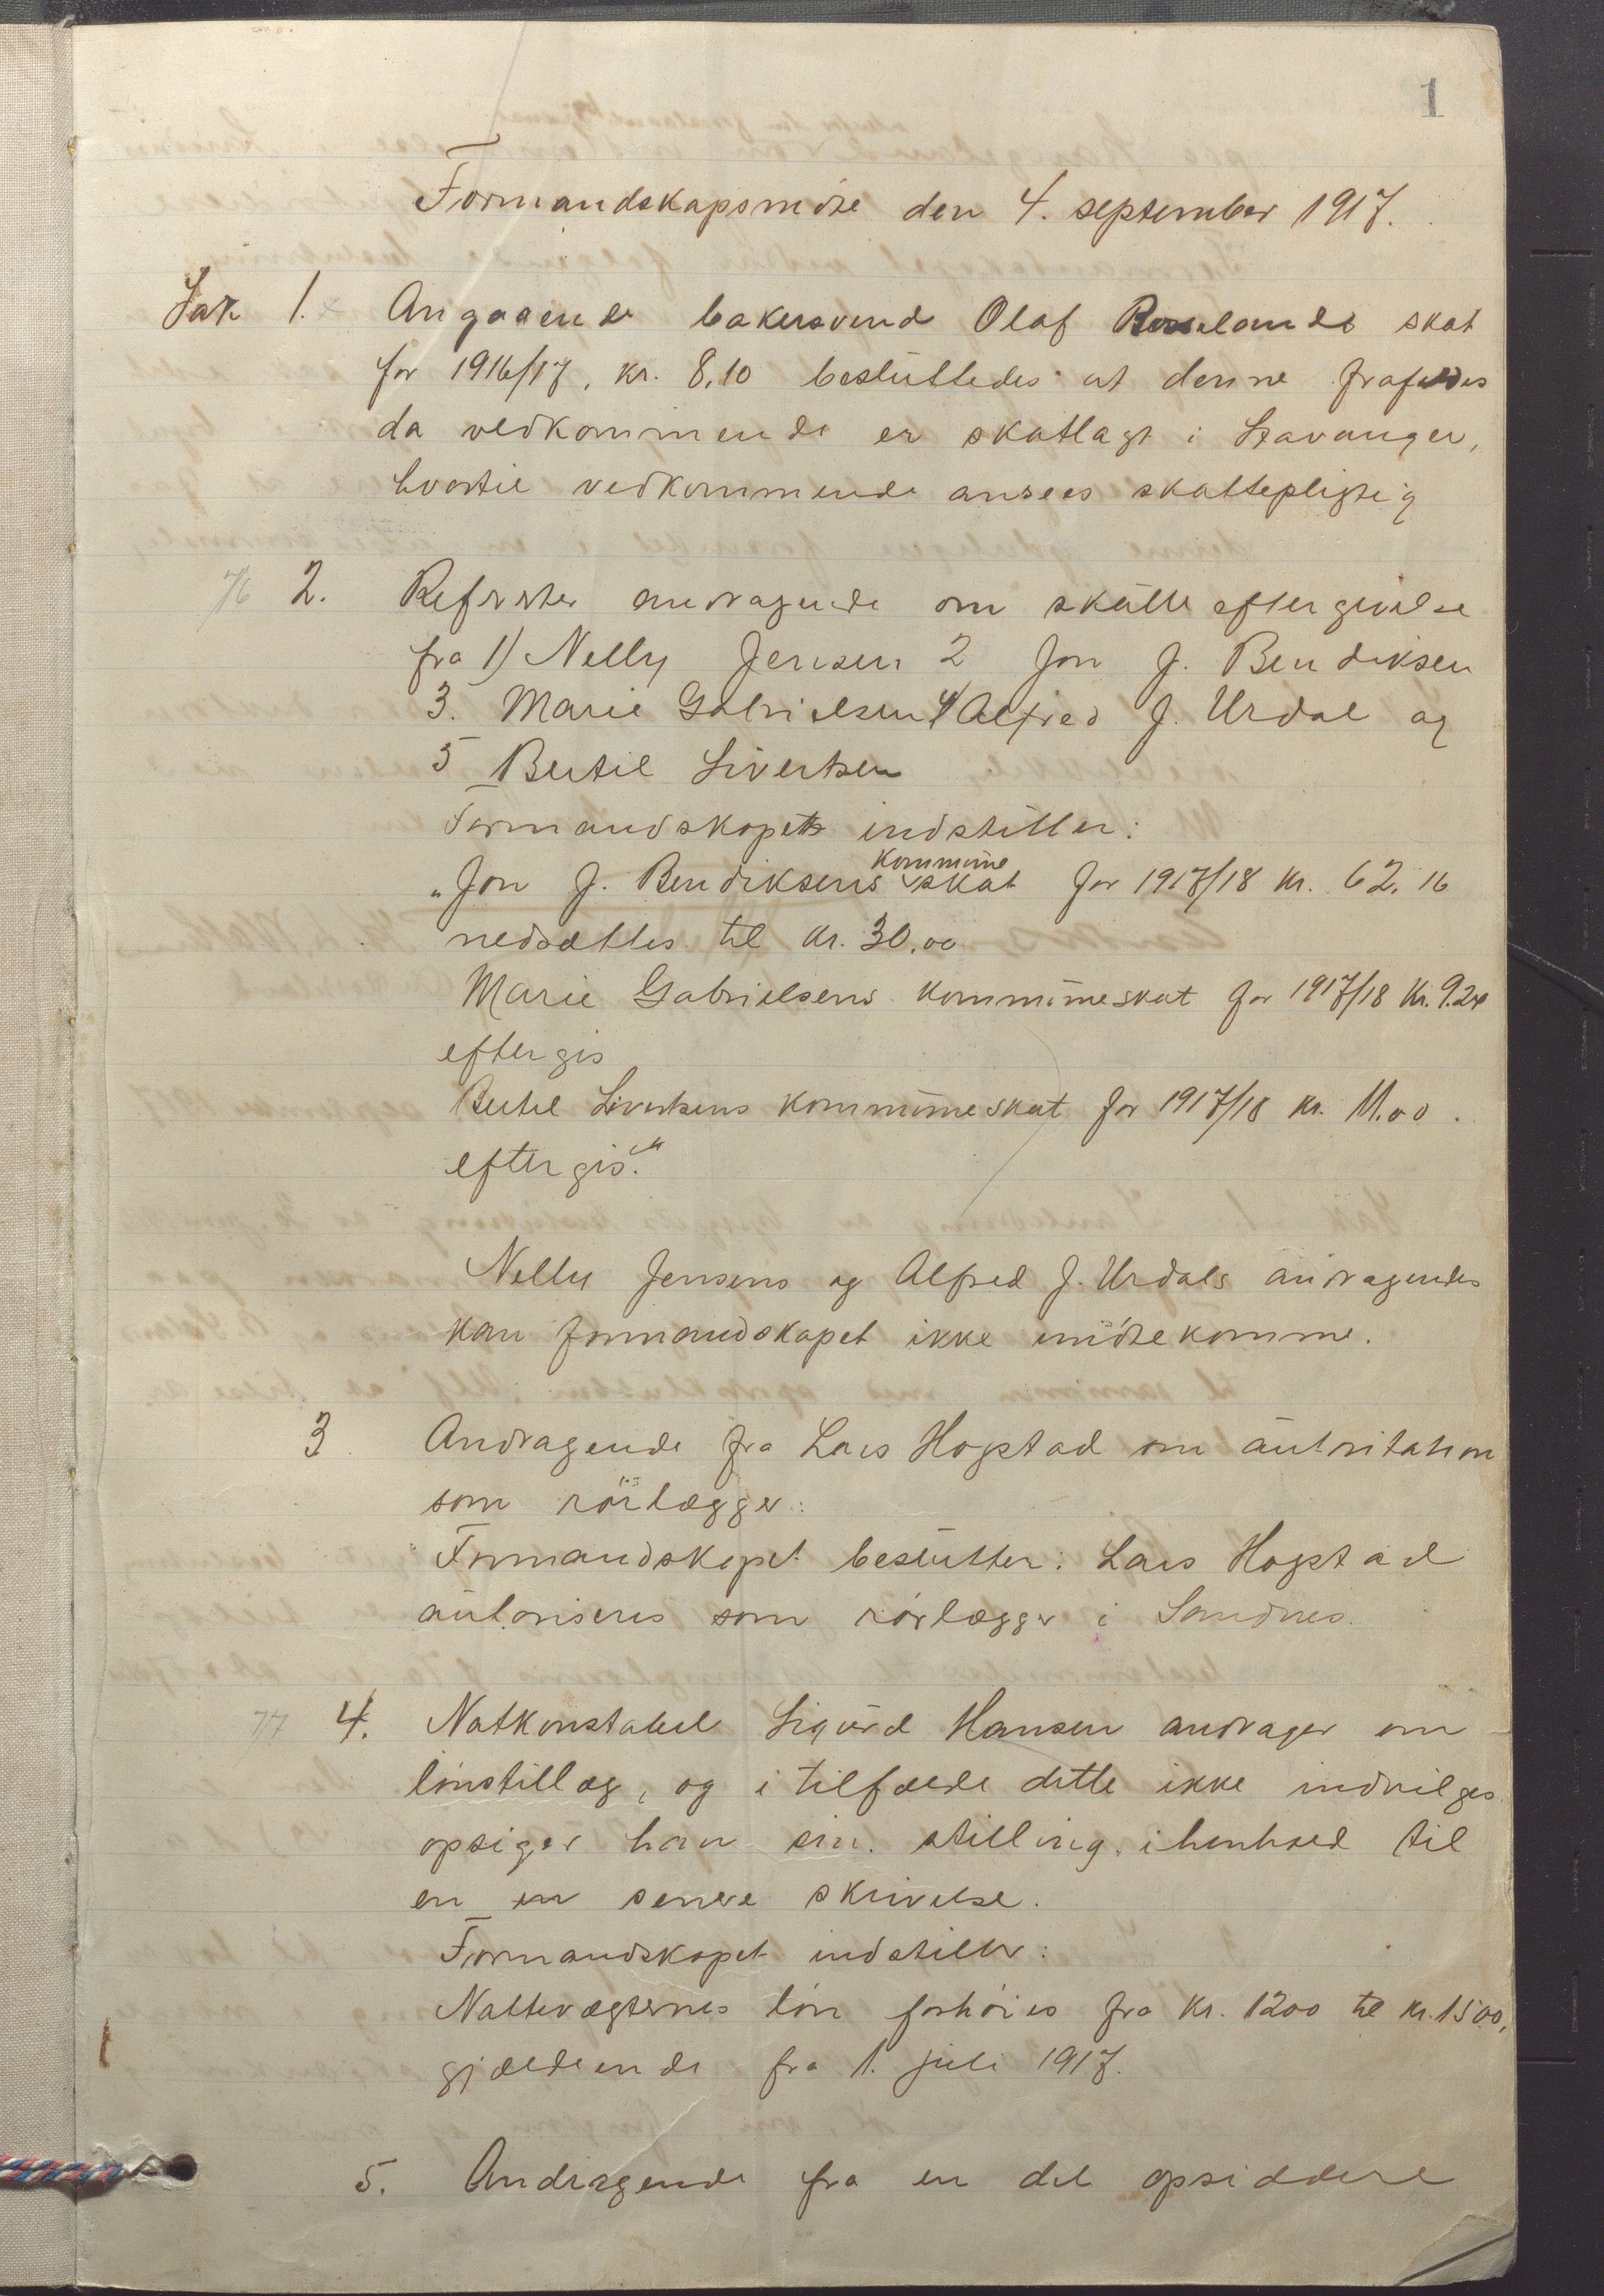 1
Formandskapsmöte den 4. september 1917.
Sak 1. Angaaende bakersvend Olaf Rosselands skat
for 1916/17, kr. 8,10 besluttedes at denne frafaldes
da vedkommende er skatlagt i Stavanger,
hvortil vedkommende ansees skattepligtig
76 2. Refertes andragende om skatteeftergivelse
fra 1) Nelly Jensen 2 Jon J. Bendiksen
3. Marie Gabrielsen 4) Alfred J. Urdal og
5 Bertil Sivertsen
Formandskapet indstiller:
"Jon J. Bendiksens kommuneskat for 1917/18 kr. 62.16
nedsættes til kr. 30.00
Marie Gabrielsens kommuneskat for 1917/18 kr. 9.24
eftergis
Bertil Sivertsens kommuneskat for 1917/18 kr. 11.00.
eftergis."
Nelly Jensens og Alfred J. Urdals andragendes
kan formandskapet ikke imötekomme.
3 Andragende fra Lars Hogstad om autoritation
som rörlægger:
Formandskapet beslutter: Lars Hogstad
autoriseres som rörlægger i Sandnes.
77 4. Natkonstabel Sigurd Hansen andrager om
lönstillæg, og i tilfælde dette ikke indvilges
opsiger han sin stilling i henhold til
en en senere skrivelse.
Formandskapet indstiller:
Nattevægternes lön forhöies fra kr. 1200 til kr. 1500,
gjældende fra 1. juli 1917.
5. Andragende fra en del opsiddere